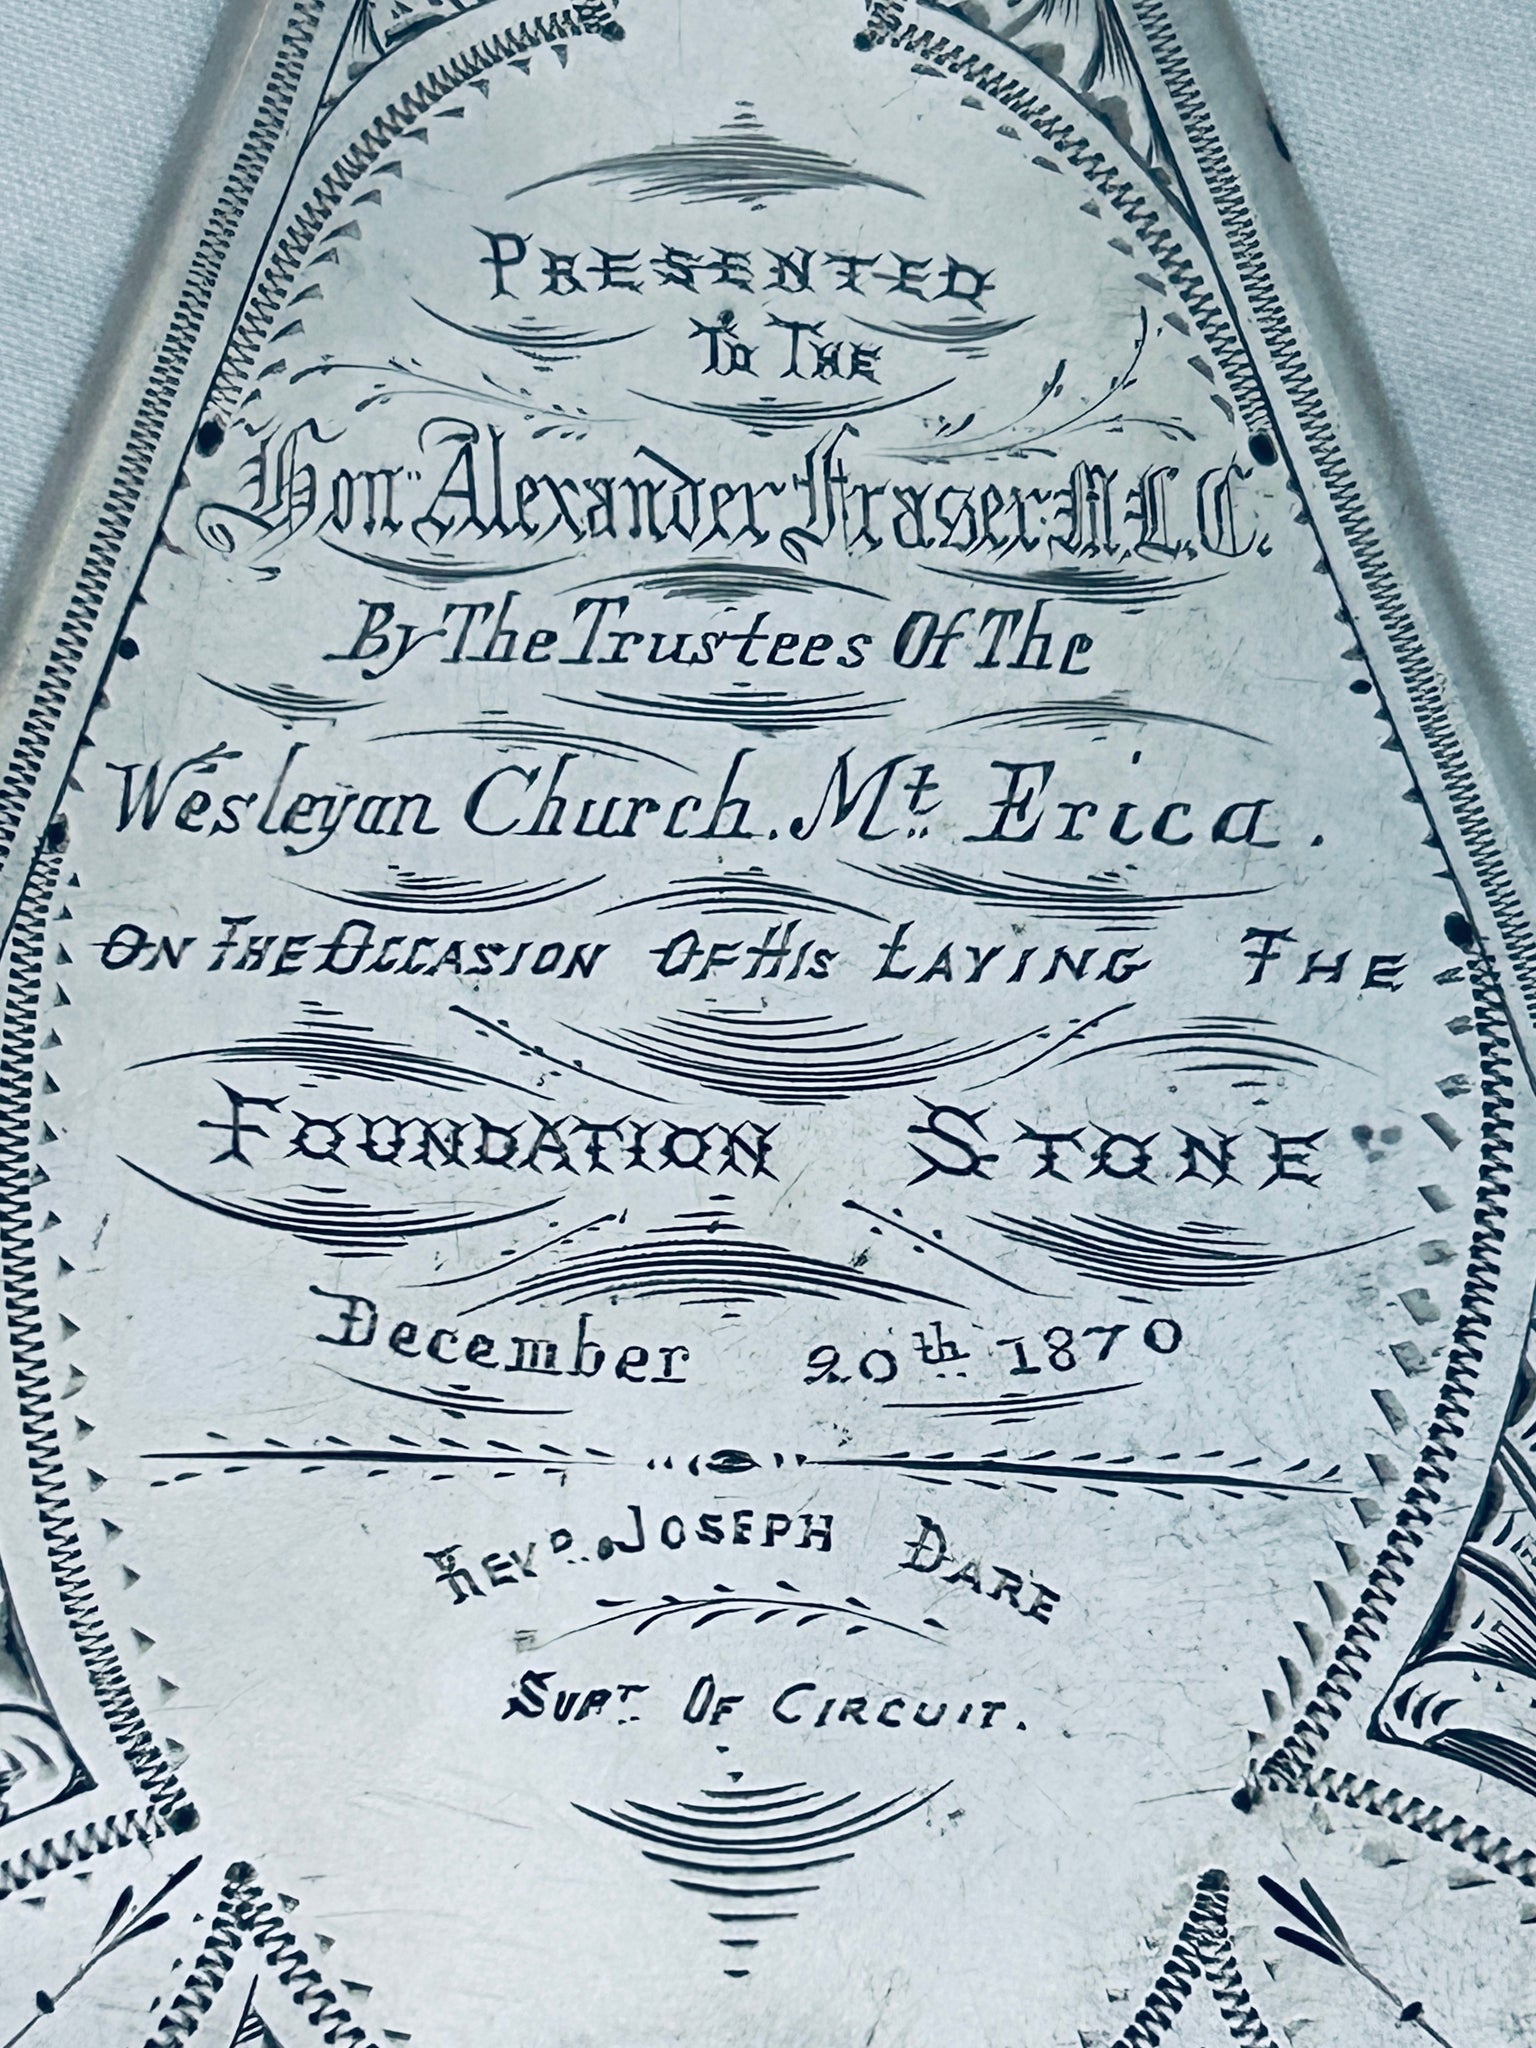 PRESENTED
TO THE
Hon. Alexander Fraser. M.L.C.
By The Trustees Of The
Wesleyan Church. Mt. Erica.
ON THE OCCASION OF HIS LAYING THE
FOUNDATION STONE
December 20th 1870
REVD. JOSEPH DARE
SUPT. OF CIRCUIT.